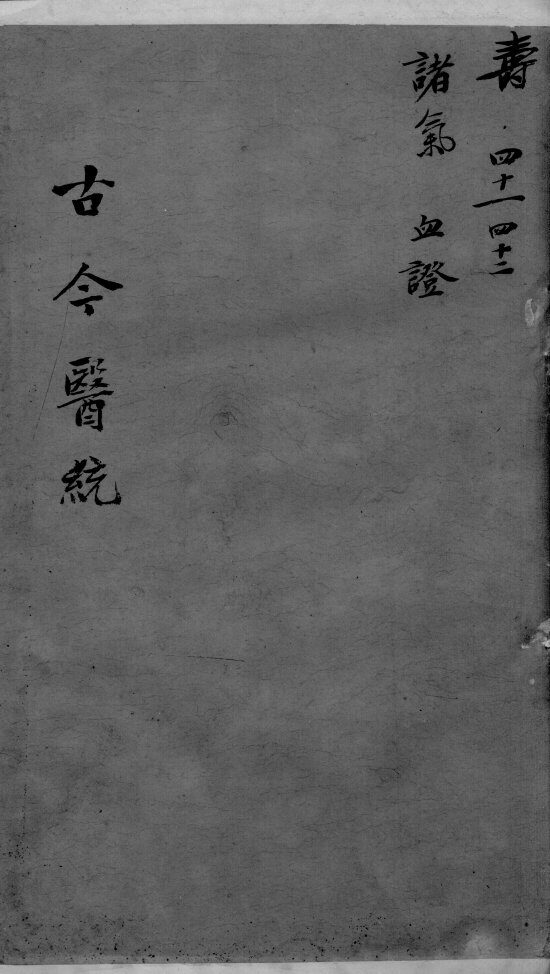 壽 四十一 四十二
諸氣 血證
古今醫統